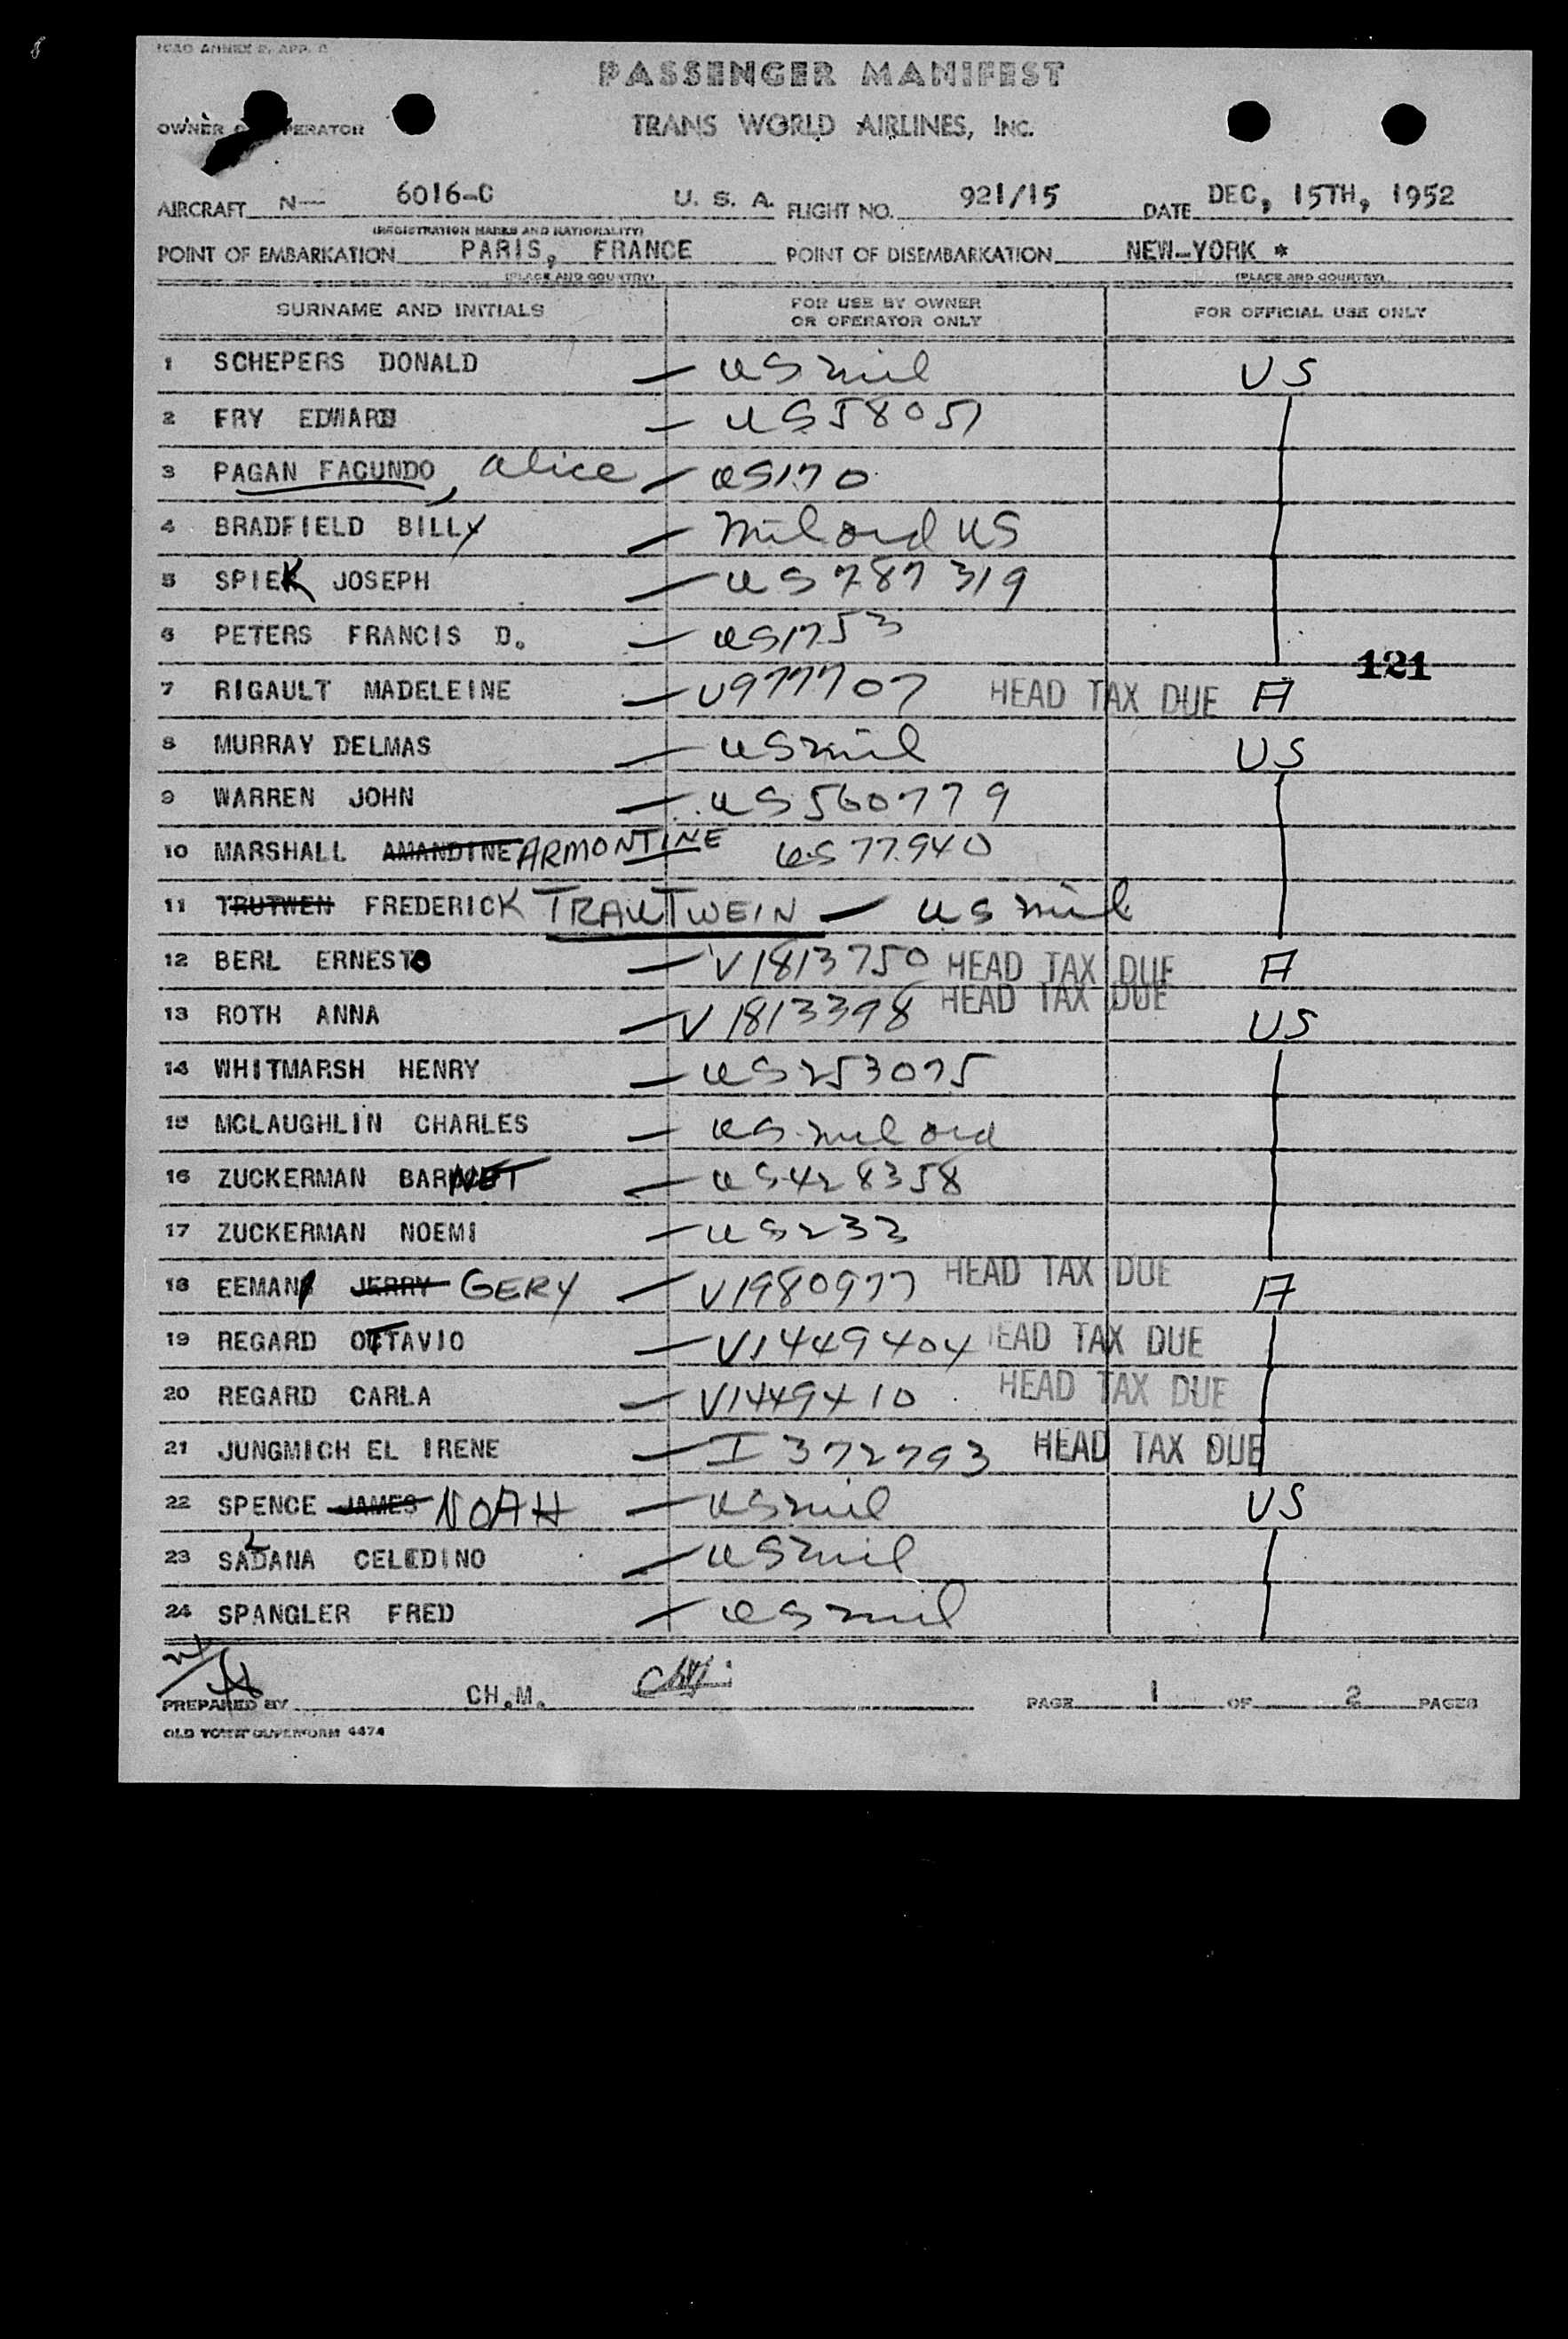 ICAO ANNEX 9, APP. C
PASSENGER MANIFEST
OWNER OPERATOR TRANS WORLD AIRLINES, INC.
AIRCRAFT N— 6016-C U. S. A. FLIGHT NO. 921/15 DATE DEC, 15TH, 1952
(REGISTRATION MARKS AND NATIONALITY)
POINT OF EMBARKATION PARIS, FRANCE POINT OF DISEMBARKATION NEW-YORK *
(PLACE AND COUNTRY) (PLACE AND COUNTRY)
SURNAME AND INITIALS FOR USE BY OWNER OR OPERATOR ONLY FOR OFFICIAL USE ONLY
1 SCHEPERS DONALD — US mil US
2 FRY EDWARD — US 58051
3 PAGAN FACUNDO, Alice — US 170
4 BRADFIELD BILLY — mil ord US
5 SPIEK JOSEPH — US 787319
6 PETERS FRANCIS D. — US 1753
121
7 RIGAULT MADELEINE — V977707 HEAD TAX DUE A
8 MURRAY DELMAS — US mil US
9 WARREN JOHN — US 560779
10 MARSHALL AMANDINE ARMONTINE US 77940
11 TRUTWEN FREDERICK TRAUTWEIN — US mil
12 BERL ERNESTO — V1813750 HEAD TAX DUE A
13 ROTH ANNA — V1813398 HEAD TAX DUE US
14 WHITMARSH HENRY — US 253075
15 MCLAUGHLIN CHARLES — US mil ord
16 ZUCKERMAN BARNET — US 428358
17 ZUCKERMAN NOEMI — US 233
18 EEMAN JERRY GERY — V1980977 HEAD TAX DUE A
19 REGARD OTTAVIO — V1449404 HEAD TAX DUE
20 REGARD CARLA — V1449410 HEAD TAX DUE
21 JUNGMICH EL IRENE — I 372793 HEAD TAX DUE
22 SPENCE JAMES NOAH — US mil US
23 SALDANA CELEDINO — US mil
24 SPANGLER FRED — US mil
PREPARED BY CH.M. PAGE 1 OF 2 PAGES
OLD TOWN DUPLIFORM 4474